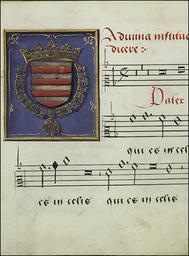 dicere :~
Pater
qui es in cel
es in celis qui es in celis